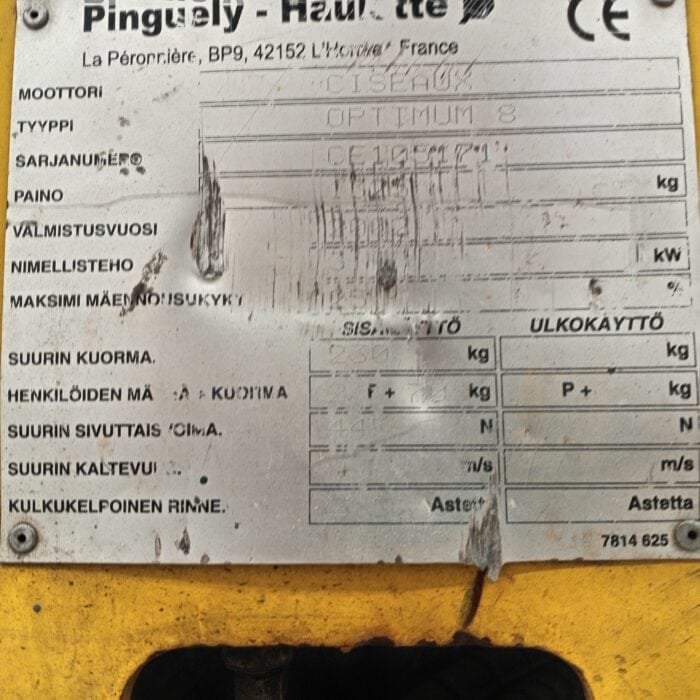 Pinguely - Haulotte
CE
La Péronnière, BP9, 42152 L'Horme France
MOOTTORI CISEAUX
TYYPPI OPTIMUM 8
SARJANUMERO
PAINO kg
VALMISTUSVUOSI
NIMELLISTEHO kW
MAKSIMI MÄENNOUSUKYKY %
SISÄKÄYTTÖ ULKOKÄYTTÖ
SUURIN KUORMA. 230 kg kg
HENKILÖIDEN kg P + kg
SUURIN SIVUTTAISVOIMA. N N
SUURIN m/s m/s
KULKUKELPOINEN RINNE. Astetta Astetta
7814 625